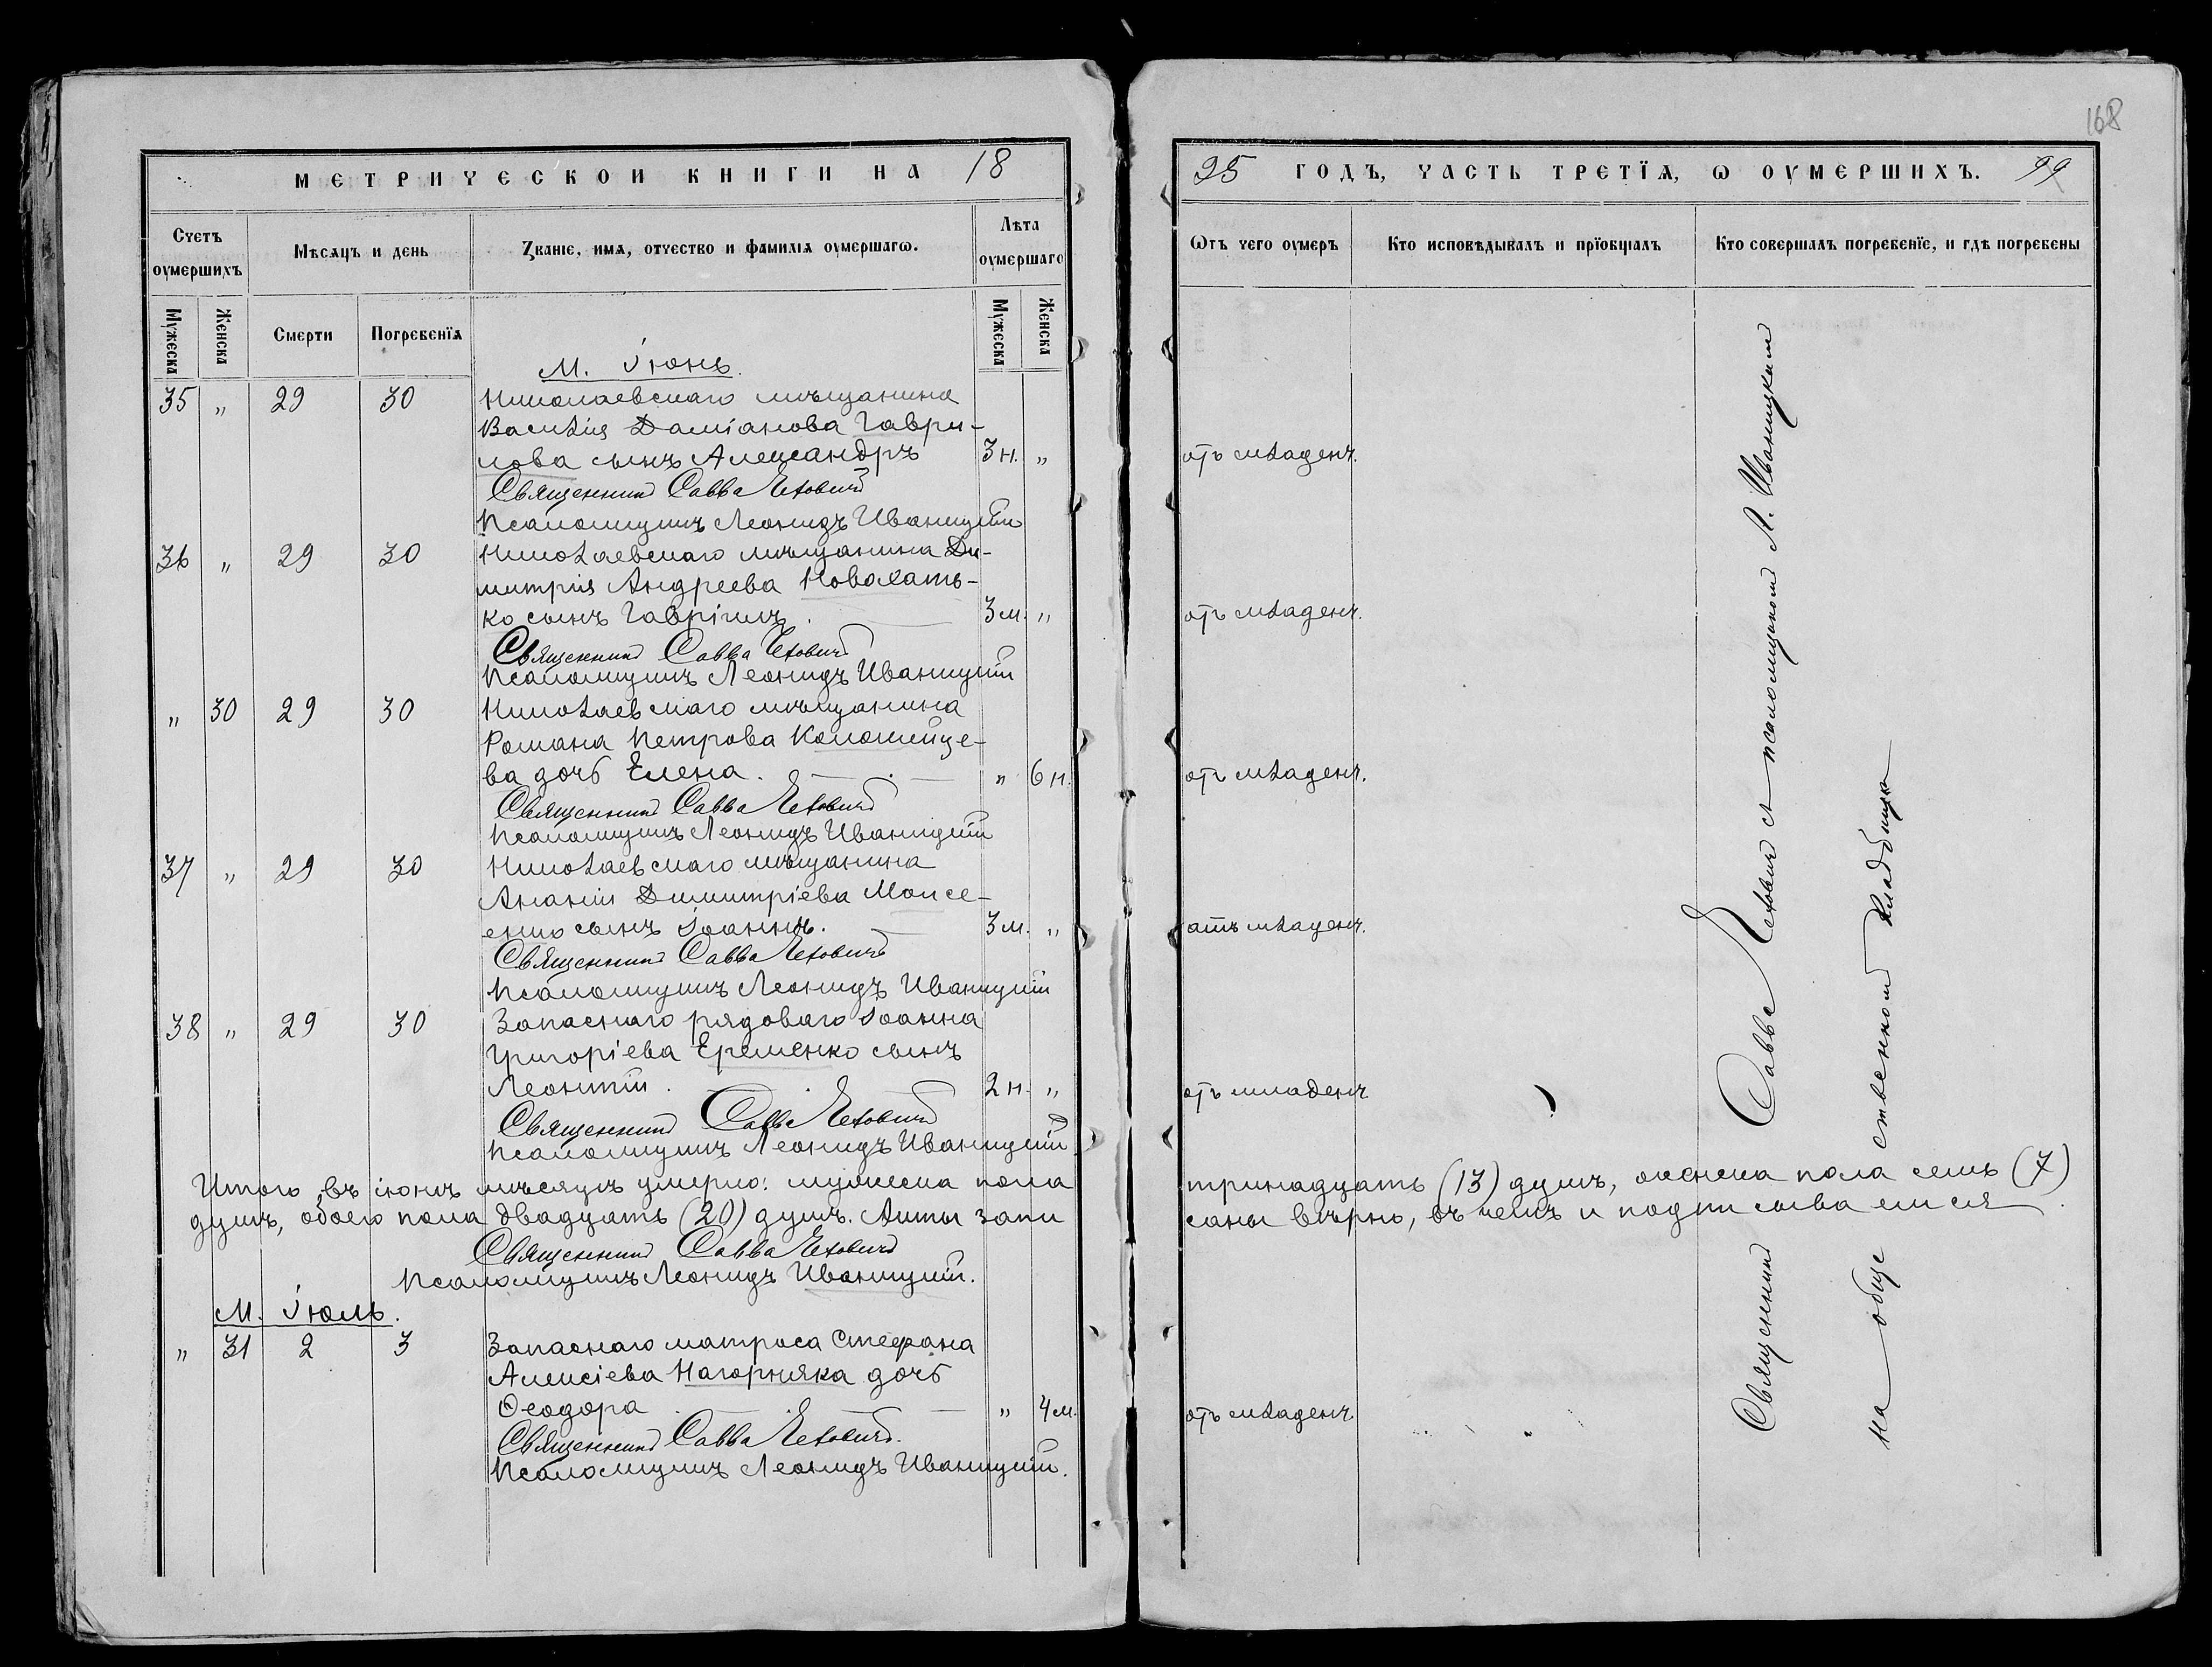 168
МЕТРИЧЕСКОИ КНИГИ НА 18
95 ГОДЪ, ЧАСТЬ ТРЕТЇѦ, Ѡ ОУМЕРШИХЪ. 99
Счетъ оумершихъ
Мѣсяцъ и день
Званіе, имя, отчество и фамилія оумершагѡ.
Лѣта оумершаго
Ѿтъ чего оумеръ
Кто исповѣдывалъ и прїобщалъ
Кто совершалъ погребенїе, и гдѣ погребены
Мужеска
Женска
Смерти
Погребенїя
Мужеска
Женска
М. Іюнь.
35 „ 29 30 Николаевскаго мѣщанина
Василія Даміанова Гаври-
лова сынъ Александръ 3 н. „ отъ младенч.
Священникъ Савва Яхович
Псаломщикъ Леонидъ Иваницкій
36 „ 29 30 Николаевскаго мѣщанина Ди-
митрія Андреева Новохать-
ко сынъ Гавріилъ. 3 м. „ отъ младенч.
Священникъ Савва
Псаломщикъ Леонидъ Иваницкій
„ 30 29 30 Николаевскаго мѣщанина
Романа Петрова Коломійце-
ва дочь Елена. „ 6 н. отъ младенч.
Священникъ Савва
Псаломщикъ Леонидъ Иваницкій
37 „ 29 30 Николаевскаго мѣщанина
Ананіи Димитріева Моисе-
енко сынъ Іоаннъ. 3 м. „ отъ младенч.
Священникъ Савва
Псаломщикъ Леонидъ Иваницкій
38 „ 29 30 Запаснаго рядоваго Іоанна
Григоріева Еременко сынъ
Леонтій. 2 н. „ отъ младенч
Священникъ Савва
Псаломщикъ Леонидъ Иваницкій
Итого въ іюнѣ мѣсяцѣ умерло: мужеска пола тринадцать (13) душъ, женска пола семь (7)
душъ, обоего пола двадцать (20) душъ. Акты запи саны вѣрно, въ чемъ и подписываемся.
Священникъ Савва
Псаломщикъ Леонидъ Иваницкій.
М. Іюль.
„ 31 2 3 Запаснаго матроса Стефана
Алексіева Нагорняка дочь
Ѳеодора „ 4 м. отъ младенч.
Священникъ Савва
Псаломщикъ Леонидъ Иваницкій.
Священникъ Савва с псаломщиком Л. Иваницким
на общественном кладбище